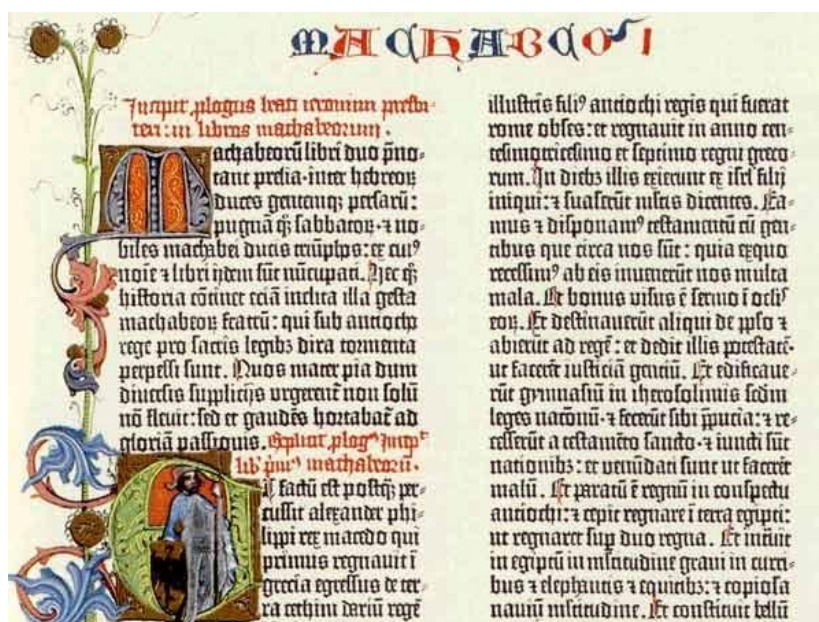 MACHABEOR I
Incipit plogus beati ieronimi presbi-
teri in libros machabeorum.
Machabeorū libri duo p̄no-
tant prelia inter hebreorū
duces gentemq; persarū:
pugnā q̄; sabbatorꝝ ⁊ no-
biles machabei ducis triūphos: ex cuiꝰ
noīe ⁊ libri ijdem sūt nūcupati. Hec q̄;
historia cōtinet eciā inclita illa gesta
machabeorꝝ fratrū: qui sub antiocho
rege pro sacris legibꝫ dira tormenta
perpessi sunt. Quos mater pia dum
diuersis supplicijs vrgerent̄ non solū
nō fleuit: sed et gaudēs hortabat̄ ad
gloriā passionis. Explicit plogꝰ Incipt
lib' p̄mꝰ machabeorū.
Et factū est postq̄; per-
cussit alexander phi-
lippi rex macedo qui
primus regnauit ī
grecia egressus de ter-
ra cethim dariū regē
illustris filiꝰ antiochi regis qui fuerat
rome obses: et regnauit in anno cen-
tesimotricesimo et septimo regni greco-
rum. In diebꝫ illis exierunt ex isrl filij
iniqui: ⁊ suaserūt multis dicentes. Ea-
mus ⁊ disponamꝰ testamentū cū gen-
tibus que circa nos sūt: quia exquo
recessimꝰ ab eis inuenerūt nos multa
mala. Et bonus visus ē sermo ī oculis
eorꝝ. Et destinauerūt aliqui de pplo ⁊
abierūt ad regē: et dedit illis potestatē
ut facerēt iusticiā gentiū. Et edificaue-
rūt gymnasiū in iherosolimis scdm
leges nacōnū: ⁊ fecerūt sibi p̄pucia: ⁊ re-
cesserūt a testamēto sancto: ⁊ iuncti sūt
nationibꝫ: et venūdati sunt ut facerēt
malū. Et paratū ē regnū in conspectu
antiochi: ⁊ cepit regnare ī terra egipti:
ut regnaret sup duo regna. Et intūit
in egiptū in mltitudine graui in curri-
bus ⁊ elephantis ⁊ equitibꝫ: ⁊ copiosa
nauiū mltitudine. Et constituit bellū